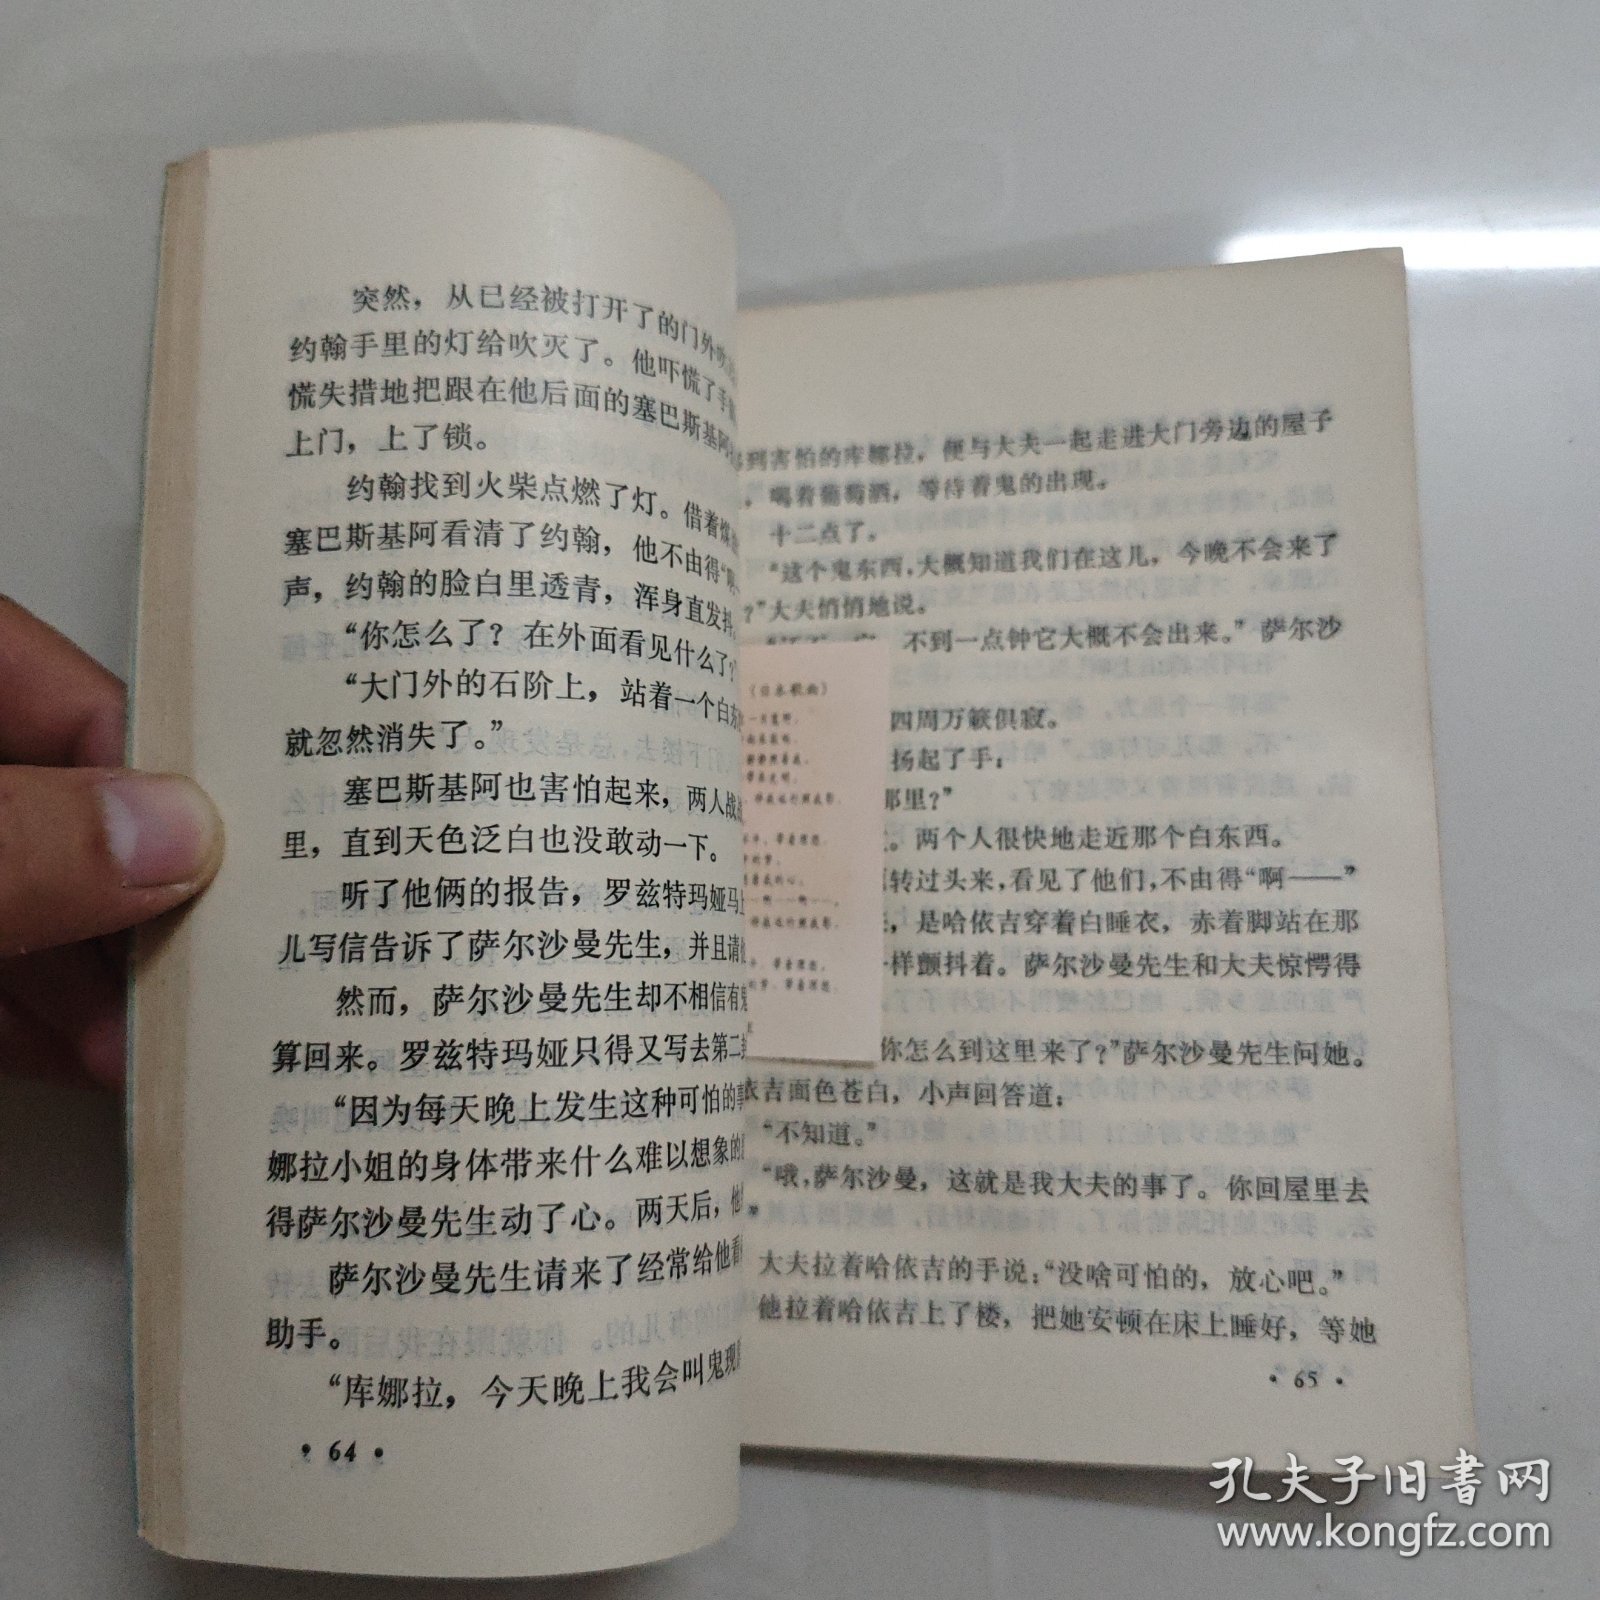 突然，从已经被打开了的门外吹
约翰手里的灯给吹灭了。他吓慌了手
慌失措地把跟在他后面的塞巴斯基阿
上门，上了锁。
约翰找到火柴点燃了灯。借着
塞巴斯基阿看清了约翰，他不由得“
声，约翰的脸白里透青，浑身直发抖
“你怎么了？在外面看见什么了？
“大门外的石阶上，站着一个白东
就忽然消失了。”
塞巴斯基阿也害怕起来，两人战
里，直到天色泛白也没敢动一下。
听了他俩的报告，罗兹特玛娅马上
儿写信告诉了萨尔沙曼先生，并且请
然而，萨尔沙曼先生却不相信有
算回来。罗兹特玛娅只得又写去第二
“因为每天晚上发生这种可怕的事
娜拉小姐的身体带来什么难以想象的
得萨尔沙曼先生动了心。两天后，他
萨尔沙曼先生请来了经常给他看
助手。
“库娜拉，今天晚上我会叫鬼现
• 64 •
到害怕的库娜拉，便与大夫一起走进大门旁边的屋子
，喝着葡萄酒，等待着鬼的出现。
十二点了。
“这个鬼东西，大概知道我们在这儿，今晚不会来了
？”大夫悄悄地说。
不到一点钟它大概不会出来。”萨尔沙
四周万籁俱寂。
扬起了手：
那里？”
。两个人很快地走近那个白东西。
转过头来，看见了他们，不由得“啊——”
，是哈依吉穿着白睡衣，赤着脚站在那
一样颤抖着。萨尔沙曼先生和大夫惊愕得
你怎么到这里来了？”萨尔沙曼先生问她。
依吉面色苍白，小声回答道：
“不知道。”
“哦，萨尔沙曼，这就是我大夫的事了。你回屋里去
大夫拉着哈依吉的手说：“没啥可怕的，放心吧。”
他拉着哈依吉上了楼，把她安顿在床上睡好，等她
• 65 •
《日本歌曲》
孔夫子旧书网
www.kongfz.com